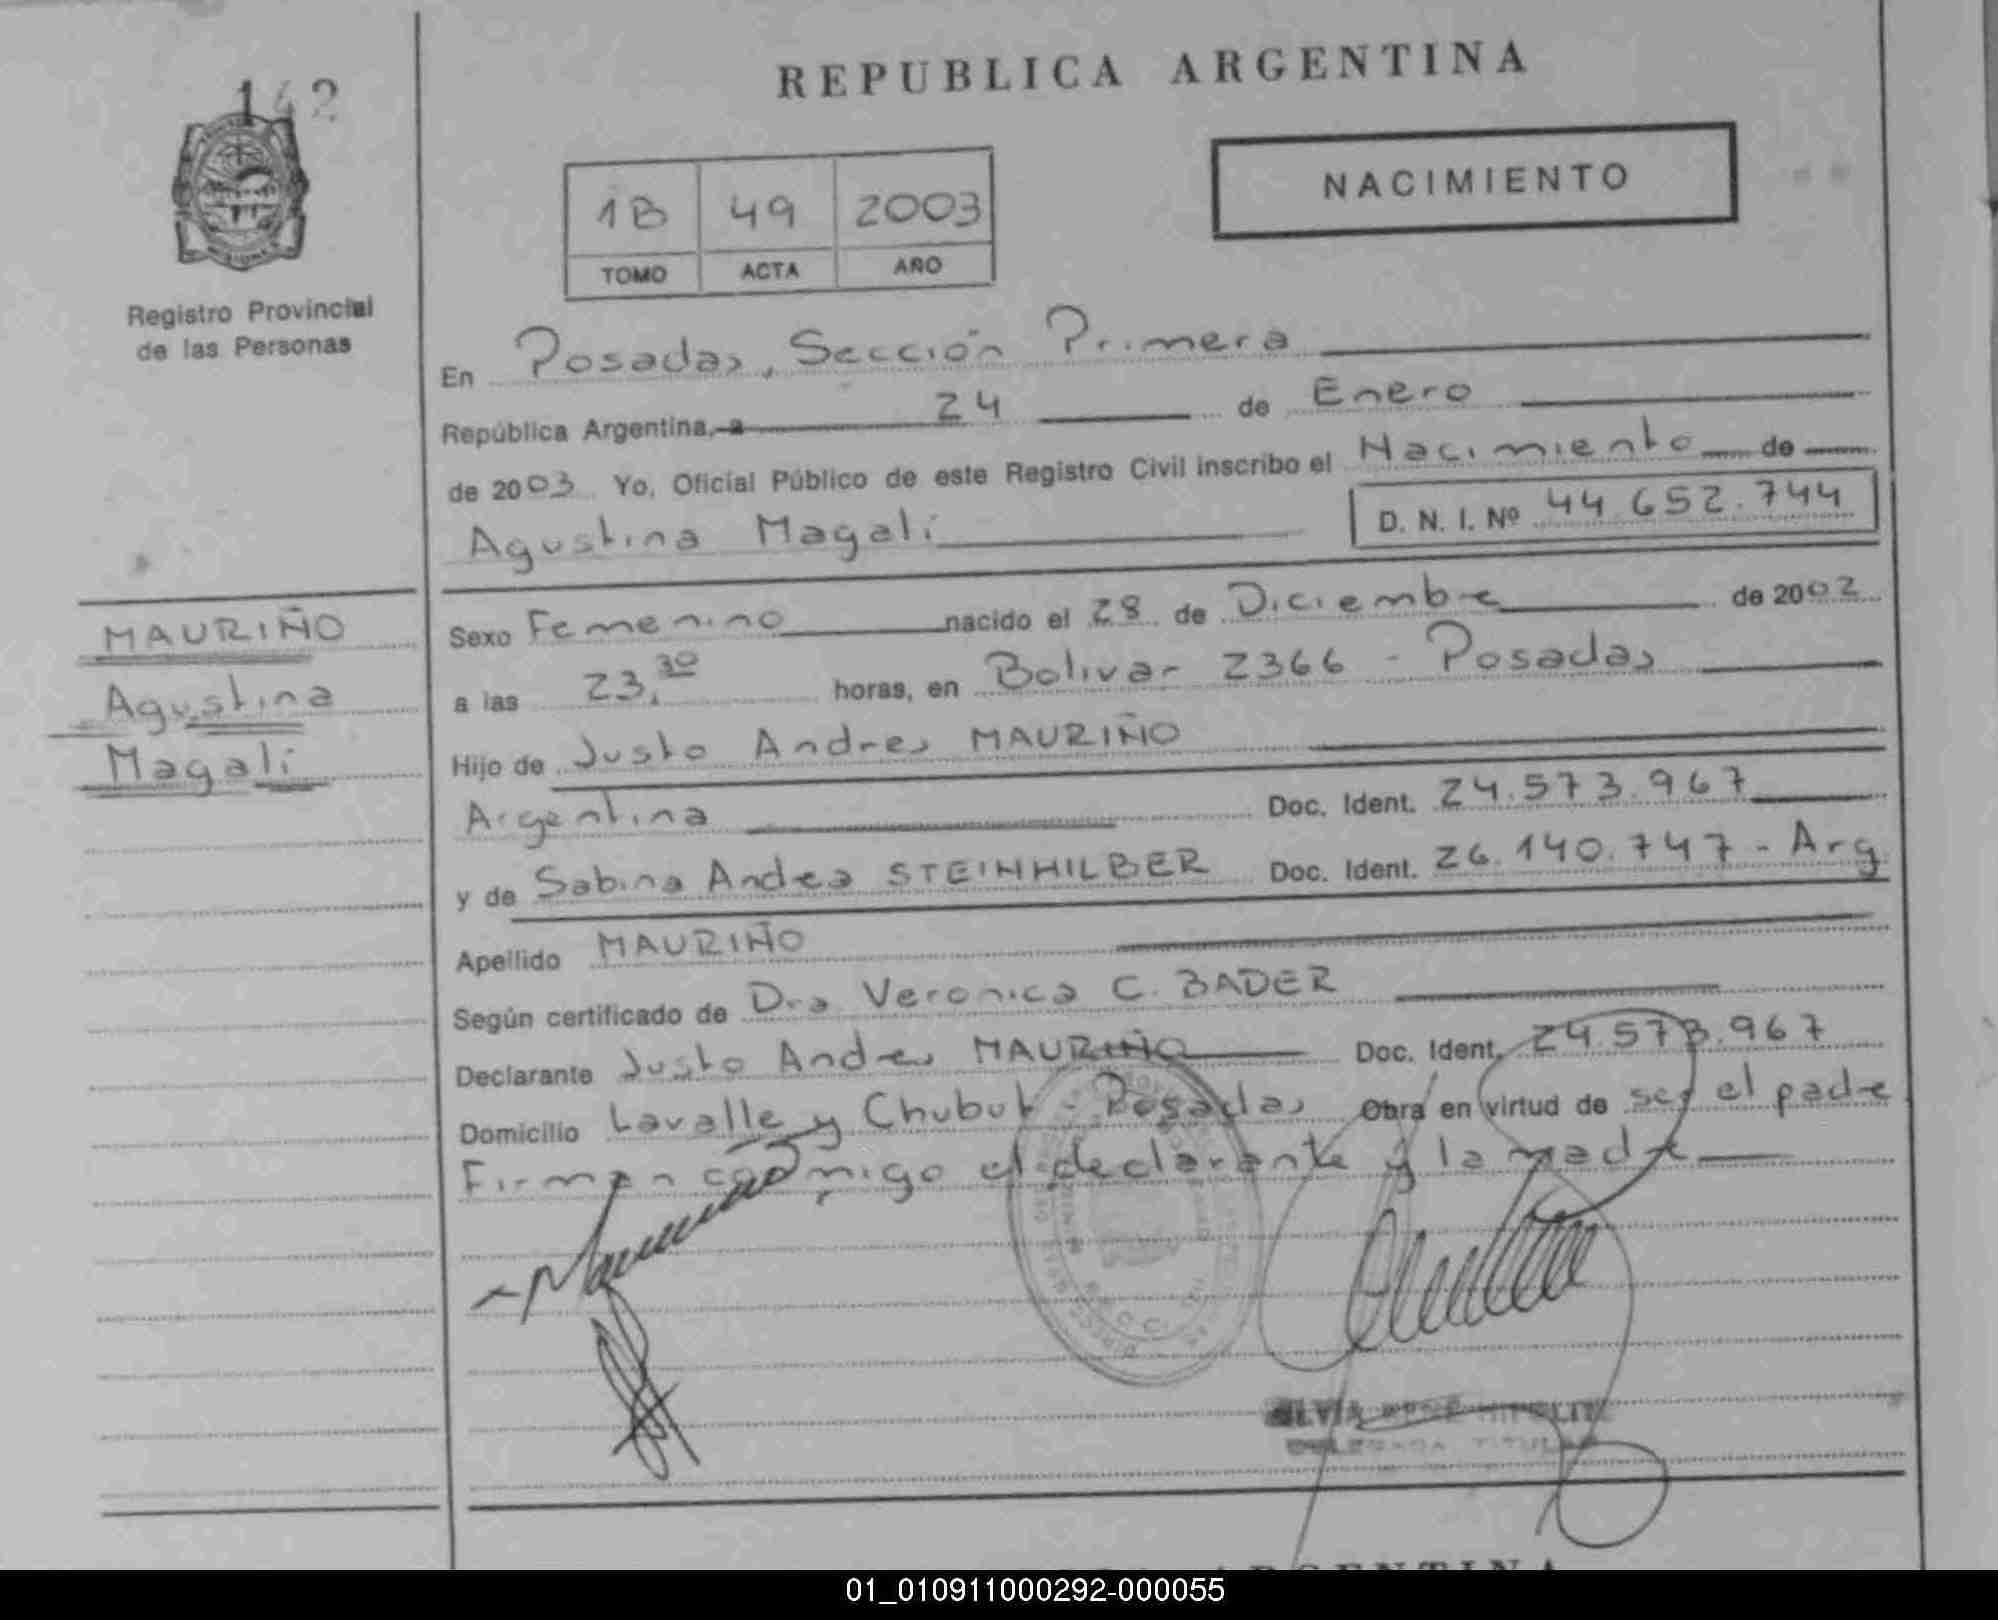 142
REPUBLICA ARGENTINA
NACIMIENTO
1B 49 2003
TOMO ACTA AÑO
Registro Provincial
de las Personas
En Posadas, Sección Primera
República Argentina, a 24 de Enero
de 2003 Yo, Oficial Público de este Registro Civil inscribo el Nacimiento de
Agustina Magalí D. N. I. Nº 44.652.744
MAURIÑO
Agustina
Magalí
Sexo Femenino nacido el 28 de Diciembre de 2002
a las 23,30 horas, en Bolivar 2366 - Posadas
Hijo de Justo Andres MAURIÑO
Argentina Doc. Ident. 24.573.967
y de Sabina Andrea STEINHILBER Doc. Ident. 26.140.747 - Arg
Apellido MAURIÑO
Según certificado de Dra Veronica C. BADER
Declarante Justo Andres MAURIÑO Doc. Ident. 24.573.967
Domicilio Lavalle y Chubut - Posadas Obra en virtud de ser el padre
Firman conmigo el declarante y la madre
SILVIA HIPOLITO
DELEGADA TITULAR
ARGENTINA
01_010911000292-000055